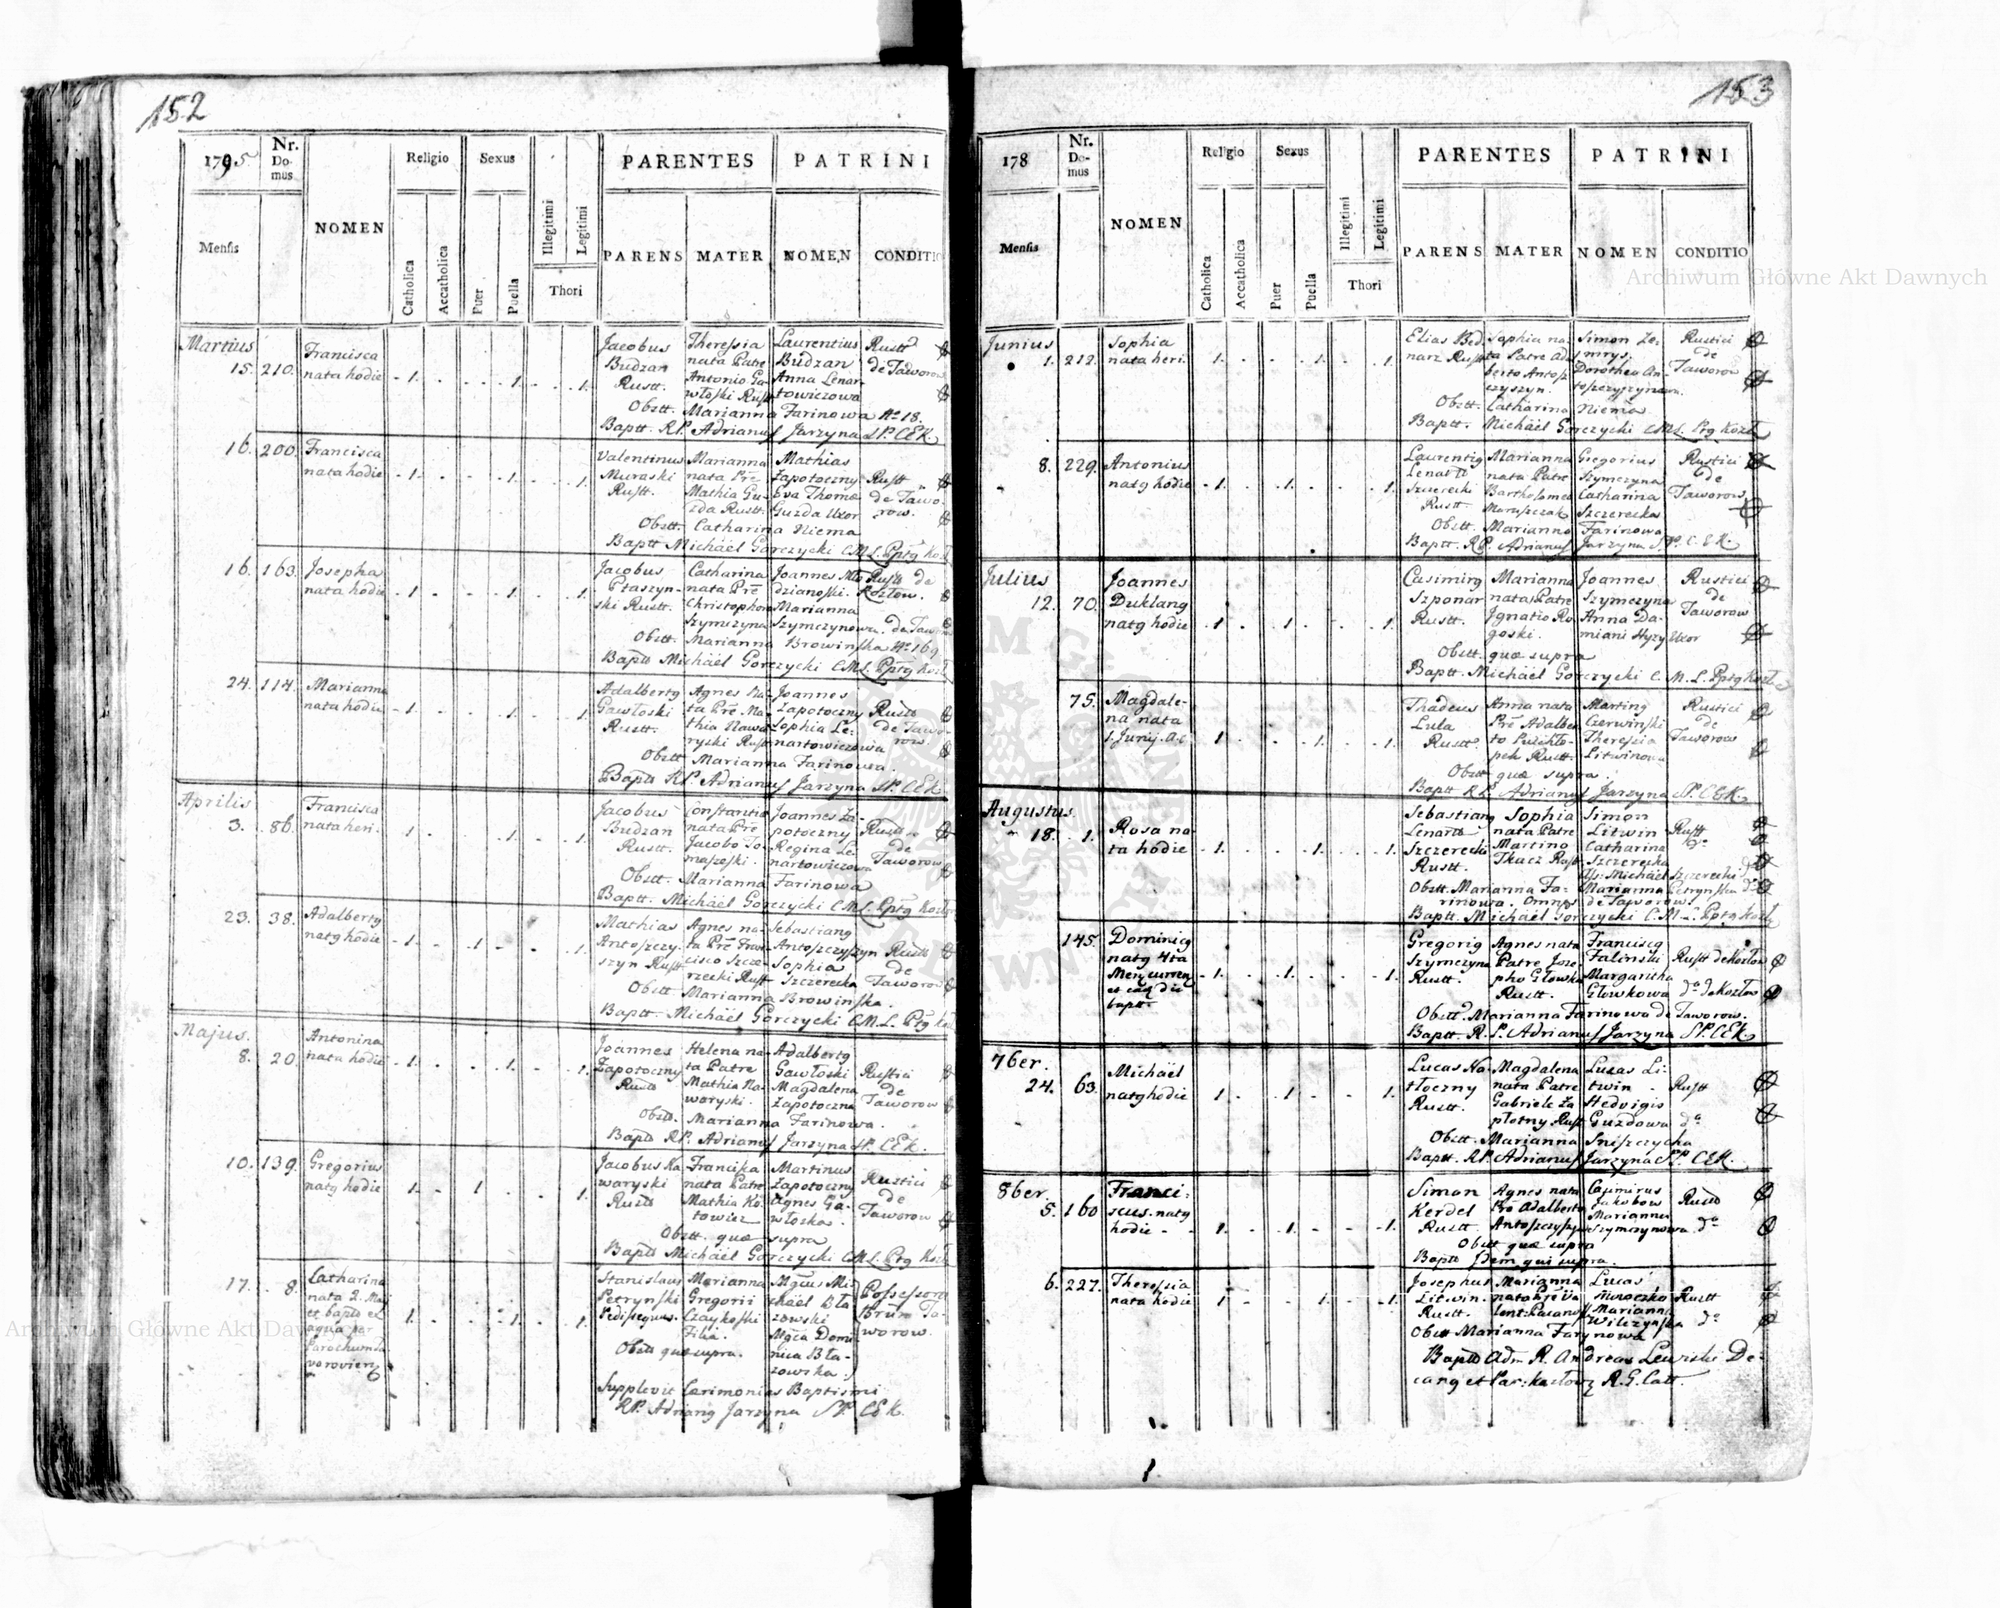 152
1795
Nr. Domus
NOMEN
Religio
Sexus
PARENTES
PATRINI
Mensis
Catholica
Accatholica
Puer
Puella
Illegitimi
Legitimi
Thori
PARENS
MATER
NOMEN
CONDITIO
Martius
15. 210. Francisca nata hodie - 1. 1. 1.
Jacobus Budzan Rustt.
Theressia nata Patre Antonio Gawłoski Rustt
Laurentius Budzan Anna Lenartowiczowa
Rustt de Taworow
Obstt. Marianna Farinowa No 18.
Baptt. RP. Adrianus Jarzyna SP. CEK.
16. 200. Francisca nata hodie 1. 1. 1.
Valentinus Muraski Rustt.
Marianna nata Pre Mathia Guzda Rustt.
Mathias Zapotoczny Eva Thomæ Guzda Uxor
Rustt de Taworow.
Obstt. Catharina Niema
Baptt Michäel Gorczycki C.M.L. Pptg
16. 163. Josepha nata hodie 1. 1. 1.
Jacobus Ptaszynski Rustt.
Catharina nata Pre Christophoro Szymczyna
Joannes Młodzianoski. Marianna Szymczynowa.
Rustt de Kozłow.
Obstt. Marianna Browinska No 169
Baptt Michäel Gorczycki C.M.L. Pptg
24. 114. Marianna nata hodie 1. 1. 1.
Adalbertg Gawłoski Rustt.
Agnes nata Pre Mathia Nawaryski Rustt
Joannes Zapotoczny Sophia Lenartowiczowa
Rustt de Taworow
Obstt Marianna Farinowa.
Baptt RP. Adrianus Jarzyna SP. CEK
Aprilis
3. 86. Francisca nata heri. 1. 1. 1.
Jacobus Budzan Rustt.
Constantia nata Pre Jacobo Tomaszeski.
Joannes Zapotoczny Regina Lenartowiczowa
Rustt. de Taworow
Obstt. Marianna Farinowa
Baptt. Michäel Gorczycki C.M.L. Pptg
23. 38. Adalbertg natg hodie 1. 1. 1.
Mathias Antoszczyszyn Rustt
Agnes nata Pre Francisco Szczerecki Rustt
Sebastiang Antoszczyszyn Sophia Szczerecka
Rustt de Taworow
Obstt Marianna Browinska.
Baptt. Michäel Gorczycki C.M.L. Pptg
Majus.
8. 20. Antonina nata hodie 1. 1. 1.
Joannes Zapotoczny Rustt
Helena nata Patre Mathia Nawaryski.
Adalbertg Gawłoski Magdalena Zapotoczna
Rustici de Taworow
Obstt. Marianna Farinowa.
Baptt RP. Adrianus Jarzyna SP. CEK.
10. 139. Gregorius natg hodie 1. 1. 1.
Jacobus Nawaryski Rustt
Franciska nata Patre Mathia Kotowicz
Martinus Zapotoczny Agnes Gawłoska.
Rustici de Taworow
Obstt. quæ supra
Baptt Michäel Gorczycki C.M.L. Pptg
17. 8. Catharina nata 2. Maj et baptt ex aqua per Parochum 1. 1. 1.
Stanislaus Petrynski Pedissequus.
Marianna Gregorii Czaykoski Filia.
Michäel Błazowski Domi nica Błazowska.
Possessores Taworow.
Obstt quæ supra.
Supplevit Cerimonias Baptismi
RP. Adriang Jarzyna SP. CEK.
153
178
Nr. Domus
NOMEN
Religio
Sexus
PARENTES
PATRINI
Mensis
Catholica
Accatholica
Puer
Puella
Illegitimi
Legitimi
Thori
PARENS
MATER
NOMEN
CONDITIO
Archiwum Główne Akt Dawnych
Junius
1. 212. Sophia nata heri. 1. 1. 1.
Elias Bednarz Rustt
Sophia nata Patre Adalberto Antoszczyszyn.
Simon Dorothea Antoszczyszynowa.
Rustici de Taworow
Obstt. Catharina Niema
Baptt. Michäel Gorczycki C.M.L. Pptg Kozł
8. 229. Antonius natg hodie 1. 1. 1.
Laurentig Lenartt Szczerecki Rustt
Marianna nata Patre Bartholomeo Maruszczak
Gregorius Szymczyna Catharina Szczerecka
Rustici de Taworow
Obstt. Marianna Farinowa
Baptt. RP. Adrianus Jarzyna SP. C.E.K.
Julius
12. 70. Joannes Duklang natg hodie 1. 1. 1.
Casimirg Szponar Rustt.
Marianna nata Patre Ignatio Rogoski.
Joannes Szymczyna Anna Damiani Hyzy Uxor
Rustici de Taworow
Obstt. quæ supra
Baptt. Michäel Gorczycki C.M.L. Pptg Kozł
75. Magdalena nata 1. Junij. a.c. 1. 1. 1.
Thadeus Lula Rustt.
Anna nata Pre Adalberto Rustt.
Marting Czerwinski Theressia Litwinowa
Rustici de Taworow
Obstt quæ supra.
Baptt RP. Adrianus Jarzyna SP. C.E.K.
Augustus
18. 1. Rosa nata hodie 1. 1. 1.
Sebastiang Lenartt Szczerecki Rustt.
Sophia nata Patre Martino Tkacz Rustt
Simon Litwin Catharina Szczerecka
Rustt
Ass: Michäel Szczerecki
Marianna Petrynska
Obstt. Marianna Farinowa. Omnes de Taworow.
Baptt. Michäel Gorczycki C.M.L. Pptg Kozł
145. Dominicg natg 4ta Mens curren et eadg die baptt. 1. 1. 1.
Gregorig Szymczyna Rustt.
Agnes nata Patre Josepho Głowka Rustt.
Franciscg Falinski Margaritha Głowkowa
Rustt de Kozłow
do de Kozłow
Obstt. Marianna Farinowa de Taworow.
Baptt R.P. Adrianus Jarzyna SP. CEK.
7ber.
24. 63. Michäel natg hodie 1. 1. 1.
Lucas Natłoczny Rustt.
Magdalena nata Patre Gabriele Zapłotny Rustt
Lucas Litwin Hedvigis Guzdowa
Rustt
do
Obstt. Marianna Sniszczycha
Baptt. RP. Adrianus Jarzyna SP. CEK.
8ber.
5. 160 Franciscus. natg hodie 1. 1. 1.
Simon Kerdel Rustt.
Agnes nata Pre Adalberto Antoszczyszyn
Casimirus Jakobow Marianna Szymczynowa
Rustt
do
Obstt quæ supra
Baptt Idem qui supra.
6. 227. Theressia nata hodie 1. 1. 1.
Josephus Litwin. Rustt.
Marianna nata Pre
Lucas Mroczko Marianna Wilczynska
Rustt
do
Obstt Marianna Farynowa
Baptt Adm. R. Andreas Lewiski Decang et Par: Kozłow R.G. Catt.
Archiwum Główne Akt Dawnych